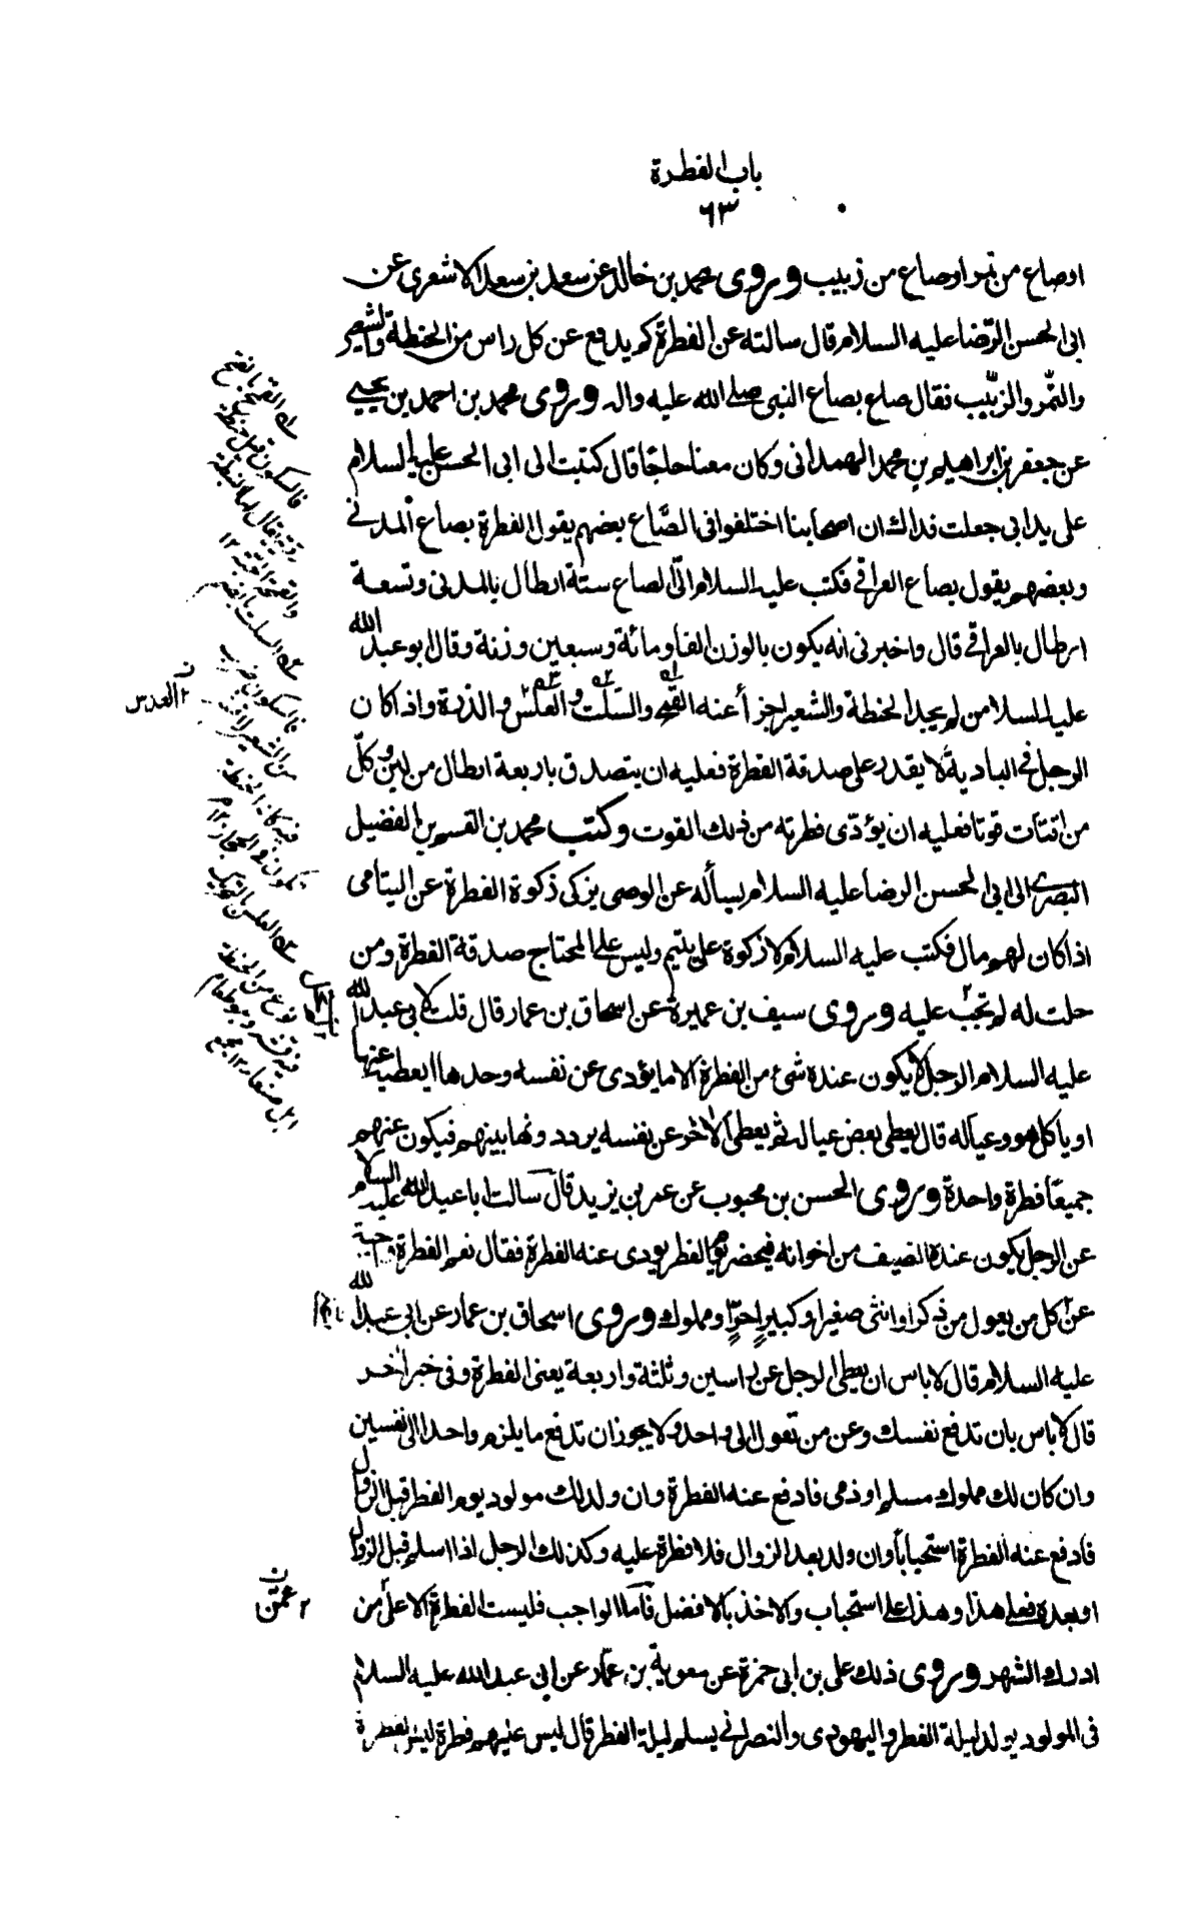 باب الفطرة
٦٣
اوصاع من تمر اوصاع من زبيب وروى محمد بن خالد عن سعد بن سعد الاشعرى عن
ابى الحسن الرّضا عليه السلام قال سالته عن الفطرة كم يدفع عن كل راس من الحنطة والشعير
والتمّر والزبيّب فقال صاع بصاع النبى صلے الله عليه واله وروى محمد بن احمد بن يحيے
عن جعفر بن ابراهيم بن محمد الهمدانى وكان معنا حاجًا قال كتبت الى ابى الحسن عليه السلام
على يد ابى جعلت فداك ان اصحابنا اختلفوا فى الصّاع بعضهم يقول الفطرة بصاع المدنے
وبعضهم يقول بصاع العراقے فكتب عليه السلام الىّ الصاع ستة ارطال بالمدنى وتسعة
ارطال بالعراقے قال واخبرنى انه يكون بالوزن الفا ومائة وسبعين وزنة وقال ابو عبد الله
عليه السلام من لم يجد الحنطة والشعير اجزأ عنه القمح والسلت و العلس والذرة واذا كان
الرجل فے البادية لا يقدر على صدقة الفطرة فعليه ان يتصدق باربعة ارطال من لبن وكلّ
من اقتات قوتا فعليه ان يؤدّى فطرته من ذلك القوت وكتب محمد بن القسم بن الفضيل
البصرے الى ابى الحسن الرضا عليه السلام يسأله عن الوصى يزكى زكوة الفطرة عن اليتامى
اذا كان لهم مال فكتب عليه السلام لا زكوة على يتيم وليس علے المحتاج صدقة الفطرة ومن
حلت له لم تجب عليه وروى سيف بن عميرة عن اسحاق بن عمار قال قلت لابى عبد الله
عليه السلام الرجل لا يكون عنده شئ من الفطرة الا ما يؤدى عن نفسه وحدها ايعطيه عنها
او ياكل هو وعياله قال يعطى بعض عياله ثم يعطى الاخر عن نفسه يرددونها بينهم فيكون عنهم
جميعًا فطرة واحدة وروى الحسن بن محبوب عن عمر بن يزيد قال سالت ابا عبد الله عليه السلام
عن الرجل يكون عنده الضيف من اخوانه فيحضر يوم الفطر يودى عنه الفطرة فقال نعم الفطرة واجبة
عن كل من يعول من ذكر او انثى صغير او كبير حرٍّ او مملوك وروى اسحاق بن عمار عن ابى عبد الله
عليه السلام قال لا باس ان يعطى الرجل عن راسين وثلثة واربعة يعنى الفطرة وفى خبر اخر
قال لا باس بان تدفع نفسك وعن من تعول الى واحد ولا يجوز ان تدفع ما يلزم واحدا الى نفسين
وان كان لك مملوك مسلم او ذمى فادفع عنه الفطرة وان ولد لك مولود يوم الفطر قبل الزوال
فادفع عنه الفطرة استحبابا وان ولد بعد الزوال فلا فطرة عليه وكذلك الرجل اذا اسلم قبل الزوال
او بعده فعلے هذا وهذا علے استحباب والاخذ بالافضل فاما الواجب فليست الفطرة الا على من
ادرك الشهر وروى ذلك على بن ابى حمزة عن معوية بن عمّار عن ابى عبد الله عليه السلام
فى المولود يولد ليلة الفطر واليهودى والنصرانے يسلم ليلة الفطر قال ليس عليهم فطرة ليس الفطرة
٢ العدس
ن
٢ عمّن